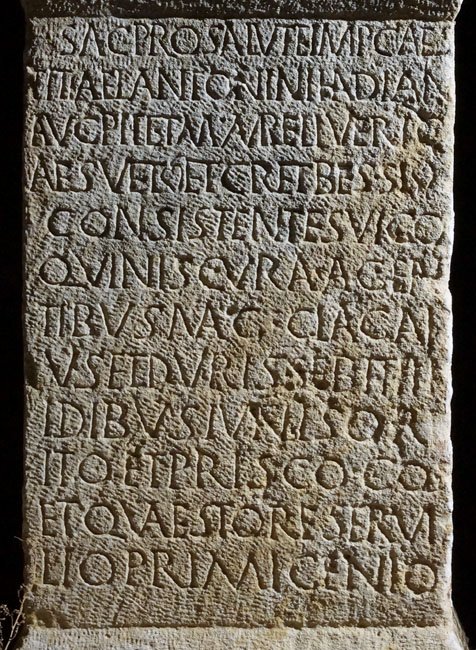 SAC PRO SALVTE IMP CAE
ITI AELANTONINI HADIAN
AVG PII ET M AVRELI VERI C
AES VET ET C R ET BESSI
CONSISTENTES VICO
QVINIS CVRA AGEN
TIBVS MAG CLA CAI
VS ET DVRISSE BITHI
IDIBVS IVNIS OR
ITO ET PRISCO CO
ET QVAESTORE SERVI
LIO PRIMIGENIO